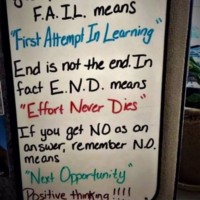 F.A.IL. means
"First Attempt In Learning"
End is not the end. In
fact E.N.D. means
"Effort Never Dies"
If you get NO as an
answer, remember N.O.
means
"Next Opportunity"
Positive thinking!!!!